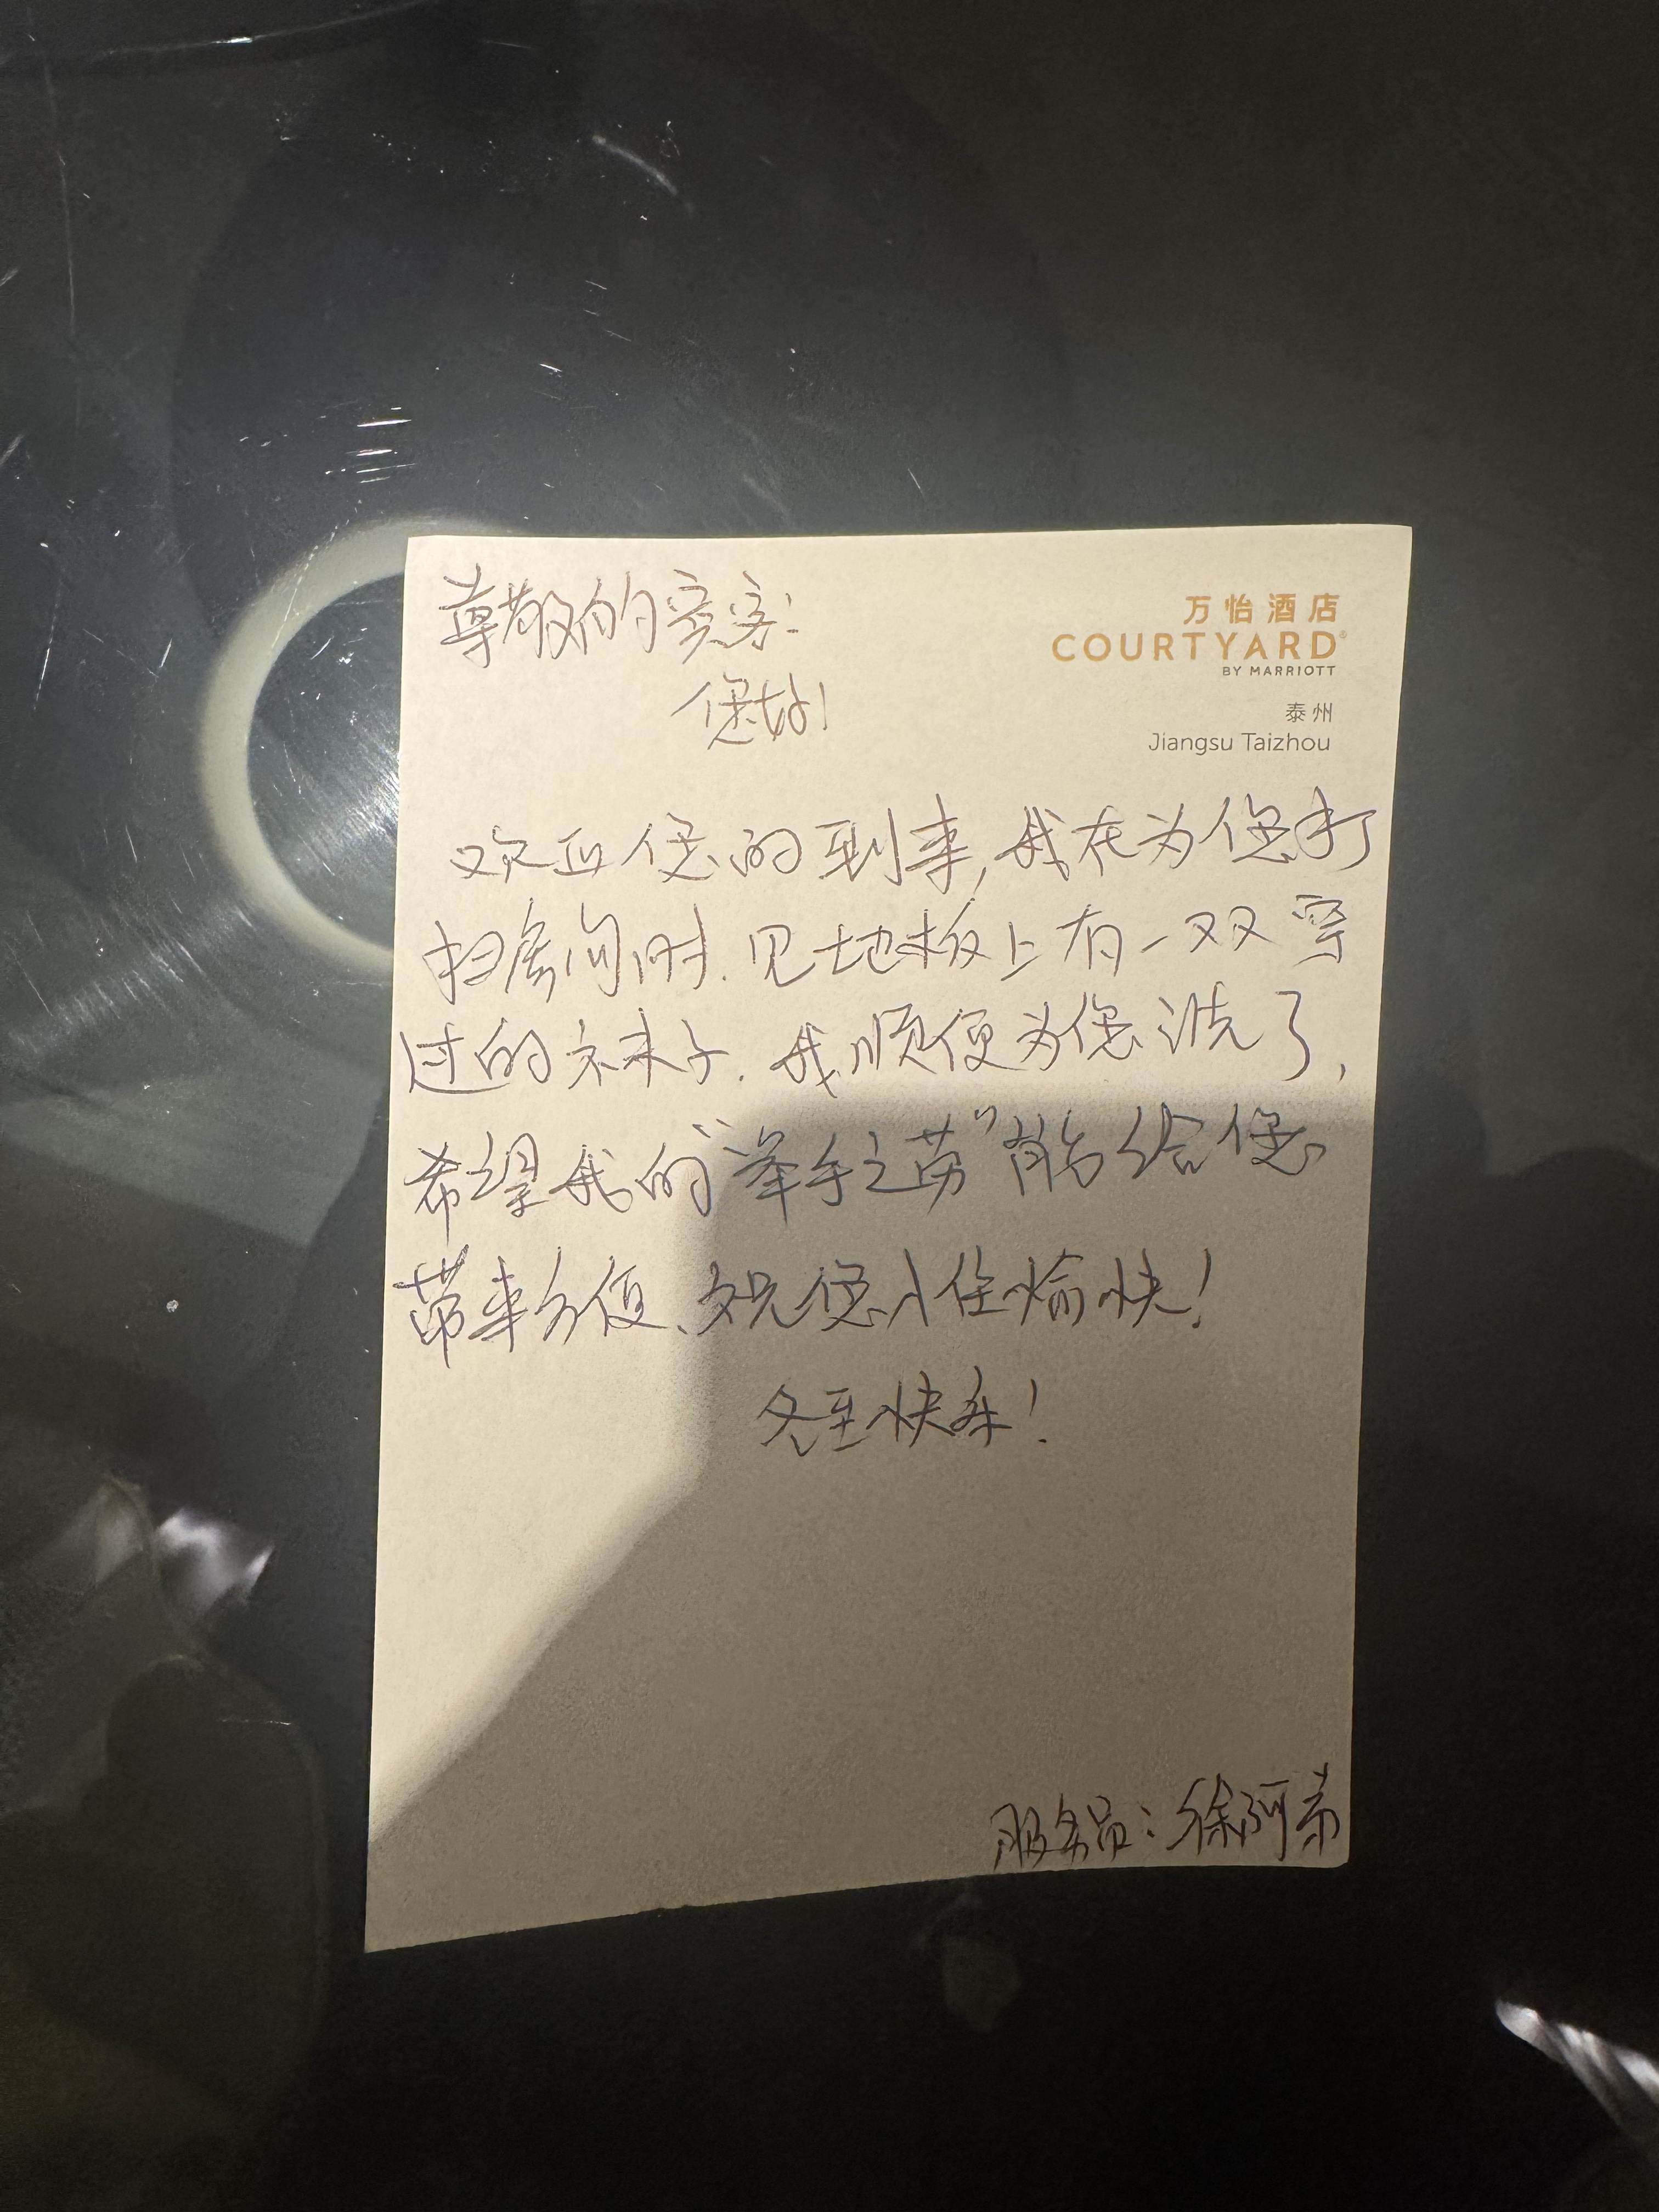 尊敬的宾客：
万怡酒店
COURTYARD®
BY MARRIOTT
泰州
Jiangsu Taizhou
您好！
欢迎您的到来，我在为您打
扫房间时．见地板上有一双穿
过的袜子．我顺便为您洗了，
希望我的“举手之劳”能给您
带来方便、祝您入住愉快！
冬至快乐！
服务员：徐阿